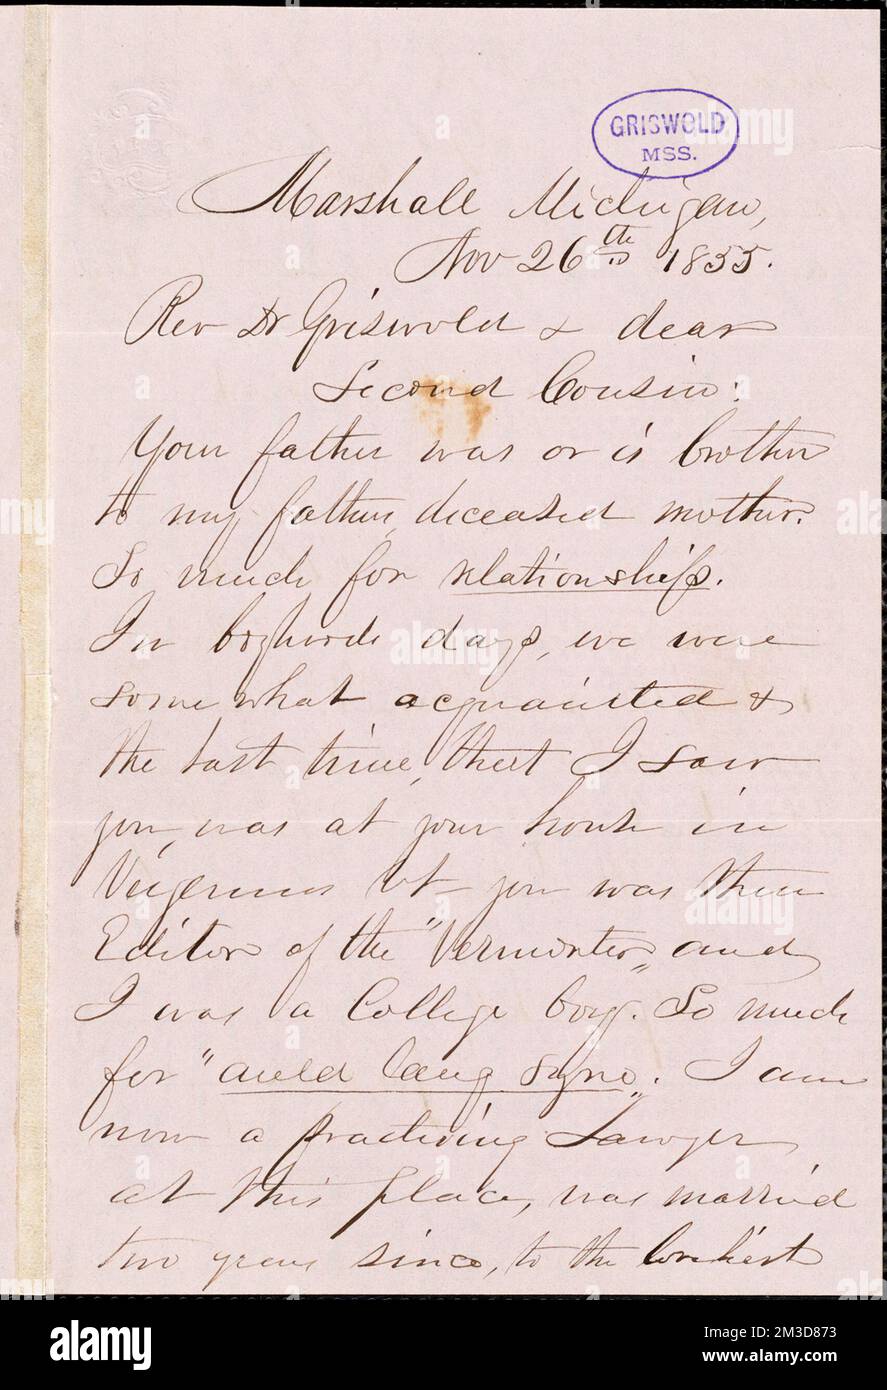 GRISWOLD
MSS.
Marshall Michigan,
Nov 26th 1855.
Rev Dr Griswold & dear
Second Cousin:
Your father was or is brother
to my father's deceased mother.
So much for relationship.
In boyhoods days, we were
somewhat acquainted &
the last time, that I saw
you, was at your house in
Vergennes Vt - you was then
Editor of the "Vermonter" and
I was a College boy. So much
for "auld lang syne". I am
now a practicing Lawyer
at this place, was married
two years since, to the loveliest
alamy
www.alamy.com
Image ID: 2M3D873